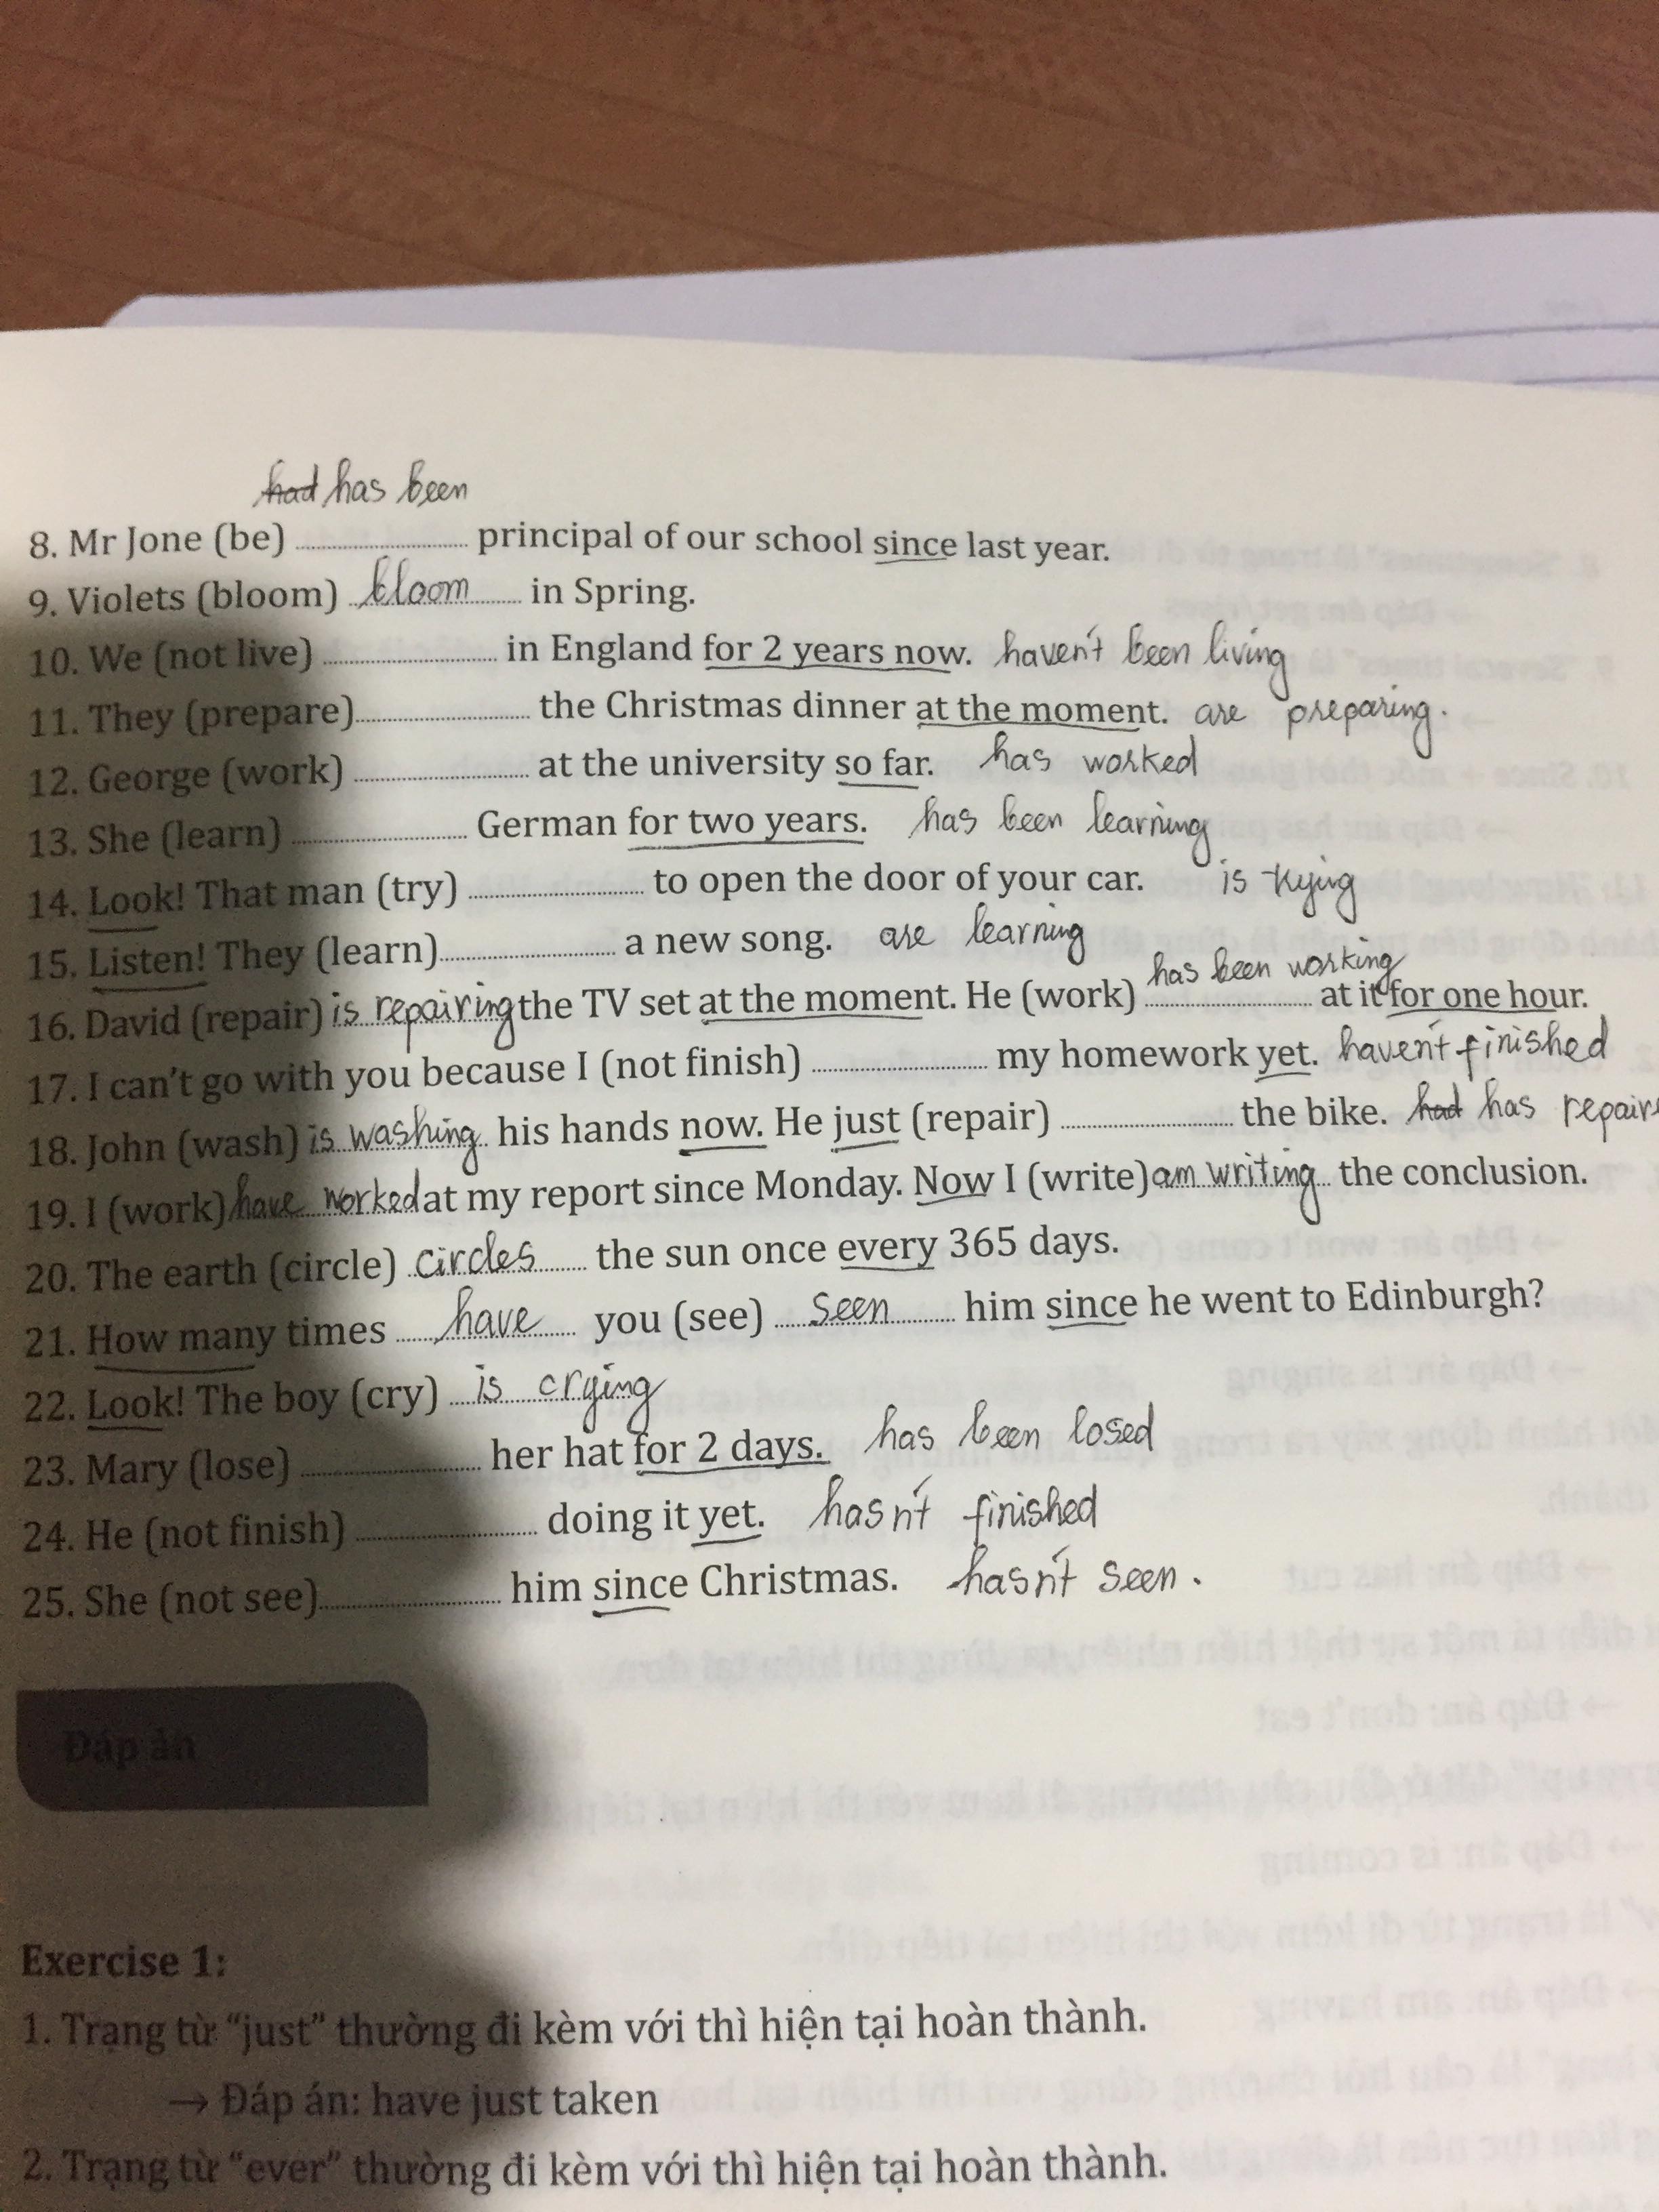 had has been
8. Mr Jone (be) .............................. principal of our school since last year.
9. Violets (bloom) bloom in Spring.
10. We (not live) .............................. in England for 2 years now. haven't been living
11. They (prepare).............................. the Christmas dinner at the moment. are preparing.
12. George (work) .............................. at the university so far. has worked
13. She (learn) .............................. German for two years. has been learning
14. Look! That man (try) .............................. to open the door of your car. is trying
15. Listen! They (learn).............................. a new song. are learning
has been working
16. David (repair) is repairing the TV set at the moment. He (work) .............................. at it for one hour.
17. I can't go with you because I (not finish) .............................. my homework yet. haven't finished
18. John (wash) is washing his hands now. He just (repair) .............................. the bike. had has
19. I (work) have worked at my report since Monday. Now I (write) am writing the conclusion.
20. The earth (circle) circles the sun once every 365 days.
21. How many times have you (see) seen him since he went to Edinburgh?
22. Look! The boy (cry) is crying
23. Mary (lose) .............................. her hat for 2 days. has been losed
24. He (not finish) .............................. doing it yet. hasn't finished
25. She (not see).............................. him since Christmas. hasn't seen.
Đáp án
Exercise 1:
1. Trạng từ “just” thường đi kèm với thì hiện tại hoàn thành.
→ Đáp án: have just taken
2. Trạng từ “ever” thường đi kèm với thì hiện tại hoàn thành.